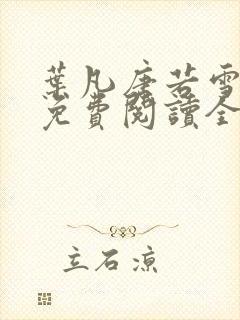 葉凡唐若雪
免費閱讀全
立石涼